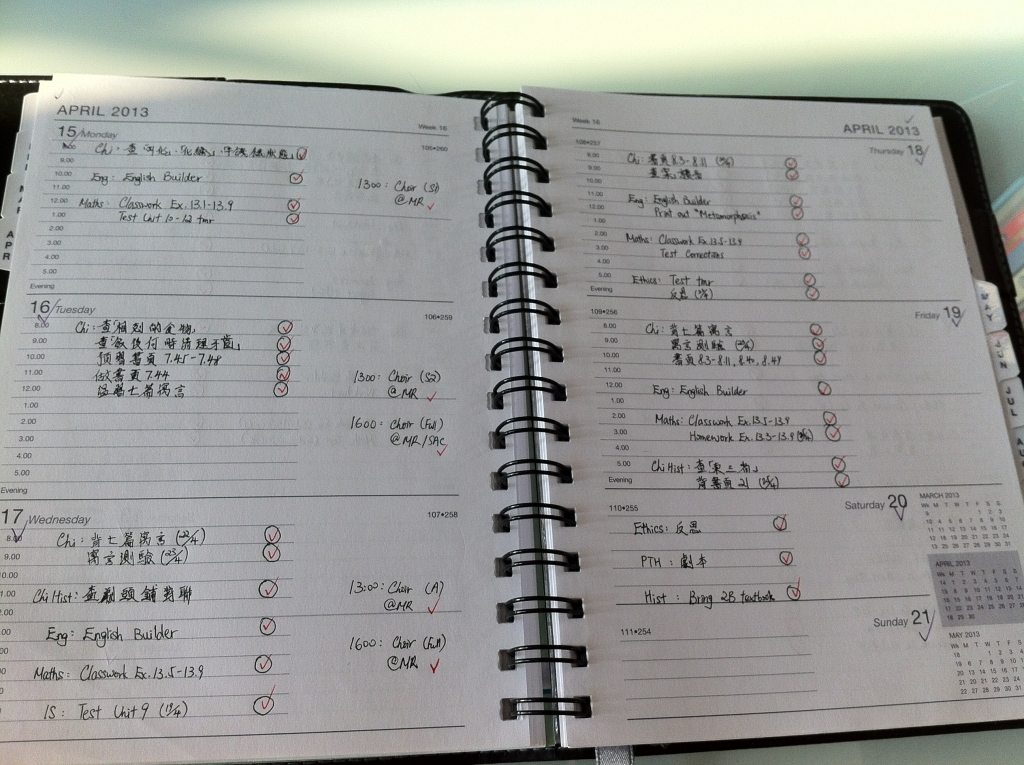 APRIL 2013
Week 16
15 Monday
105•260
8.00
Chi: 查
9.00
10.00
Eng: English Builder
11.00
1300: Choir (S1)
@MR
12.00
Maths: Classwork Ex.13.1-13.9
1.00
Test Unit 10-12 tmr
2.00
3.00
4.00
5.00
Evening
16 Tuesday
106•259
8.00
Chi: 查「相剋的食物」
9.00
查「飯後何時清理牙齒」
10.00
預習書頁 7.45-7.48
11.00
做書頁 7.44
1300: Choir (S2)
@MR
12.00
溫習七篇寓言
1.00
2.00
1600: Choir (Full)
@MR/SAC
3.00
4.00
5.00
Evening
17 Wednesday
107•258
8.00
Chi: 背七篇寓言 (22/4)
9.00
寓言測驗 (23/4)
10.00
Chi Hist: 查剃頭鋪對聯
1300: Choir (A)
@MR
Eng: English Builder
1600: Choir (Full)
@MR
Maths: Classwork Ex.13.5-13.9
IS: Test Unit 9
Week 16
APRIL 2013
108•257
Thursday 18
8.00
Chi: 書頁 8.3-8.11
9.00
10.00
11.00
Eng: English Builder
12.00
Print out "Metamorphosis"
1.00
2.00
Maths: Classwork Ex.13.5-13.9
3.00
Test Corrections
4.00
5.00
Ethics: Test tmr
Evening
反思
109•256
Friday 19
8.00
Chi: 背七篇寓言
9.00
寓言測驗
10.00
書頁 8.3-8.11, 8.40, 8.49
11.00
12.00
Eng: English Builder
1.00
2.00
Maths: Classwork Ex.13.5-13.9
3.00
Homework Ex.13.3-13.9
4.00
5.00
Chi Hist: 查「東三省」
Evening
背書頁 21
110•255
Saturday 20
Ethics: 反思
PTH: 劇本
Hist: Bring 2B textbook
111•254
Sunday 21
MARCH 2013
APRIL 2013
MAY 2013
APR
MAY
JUN
JUL